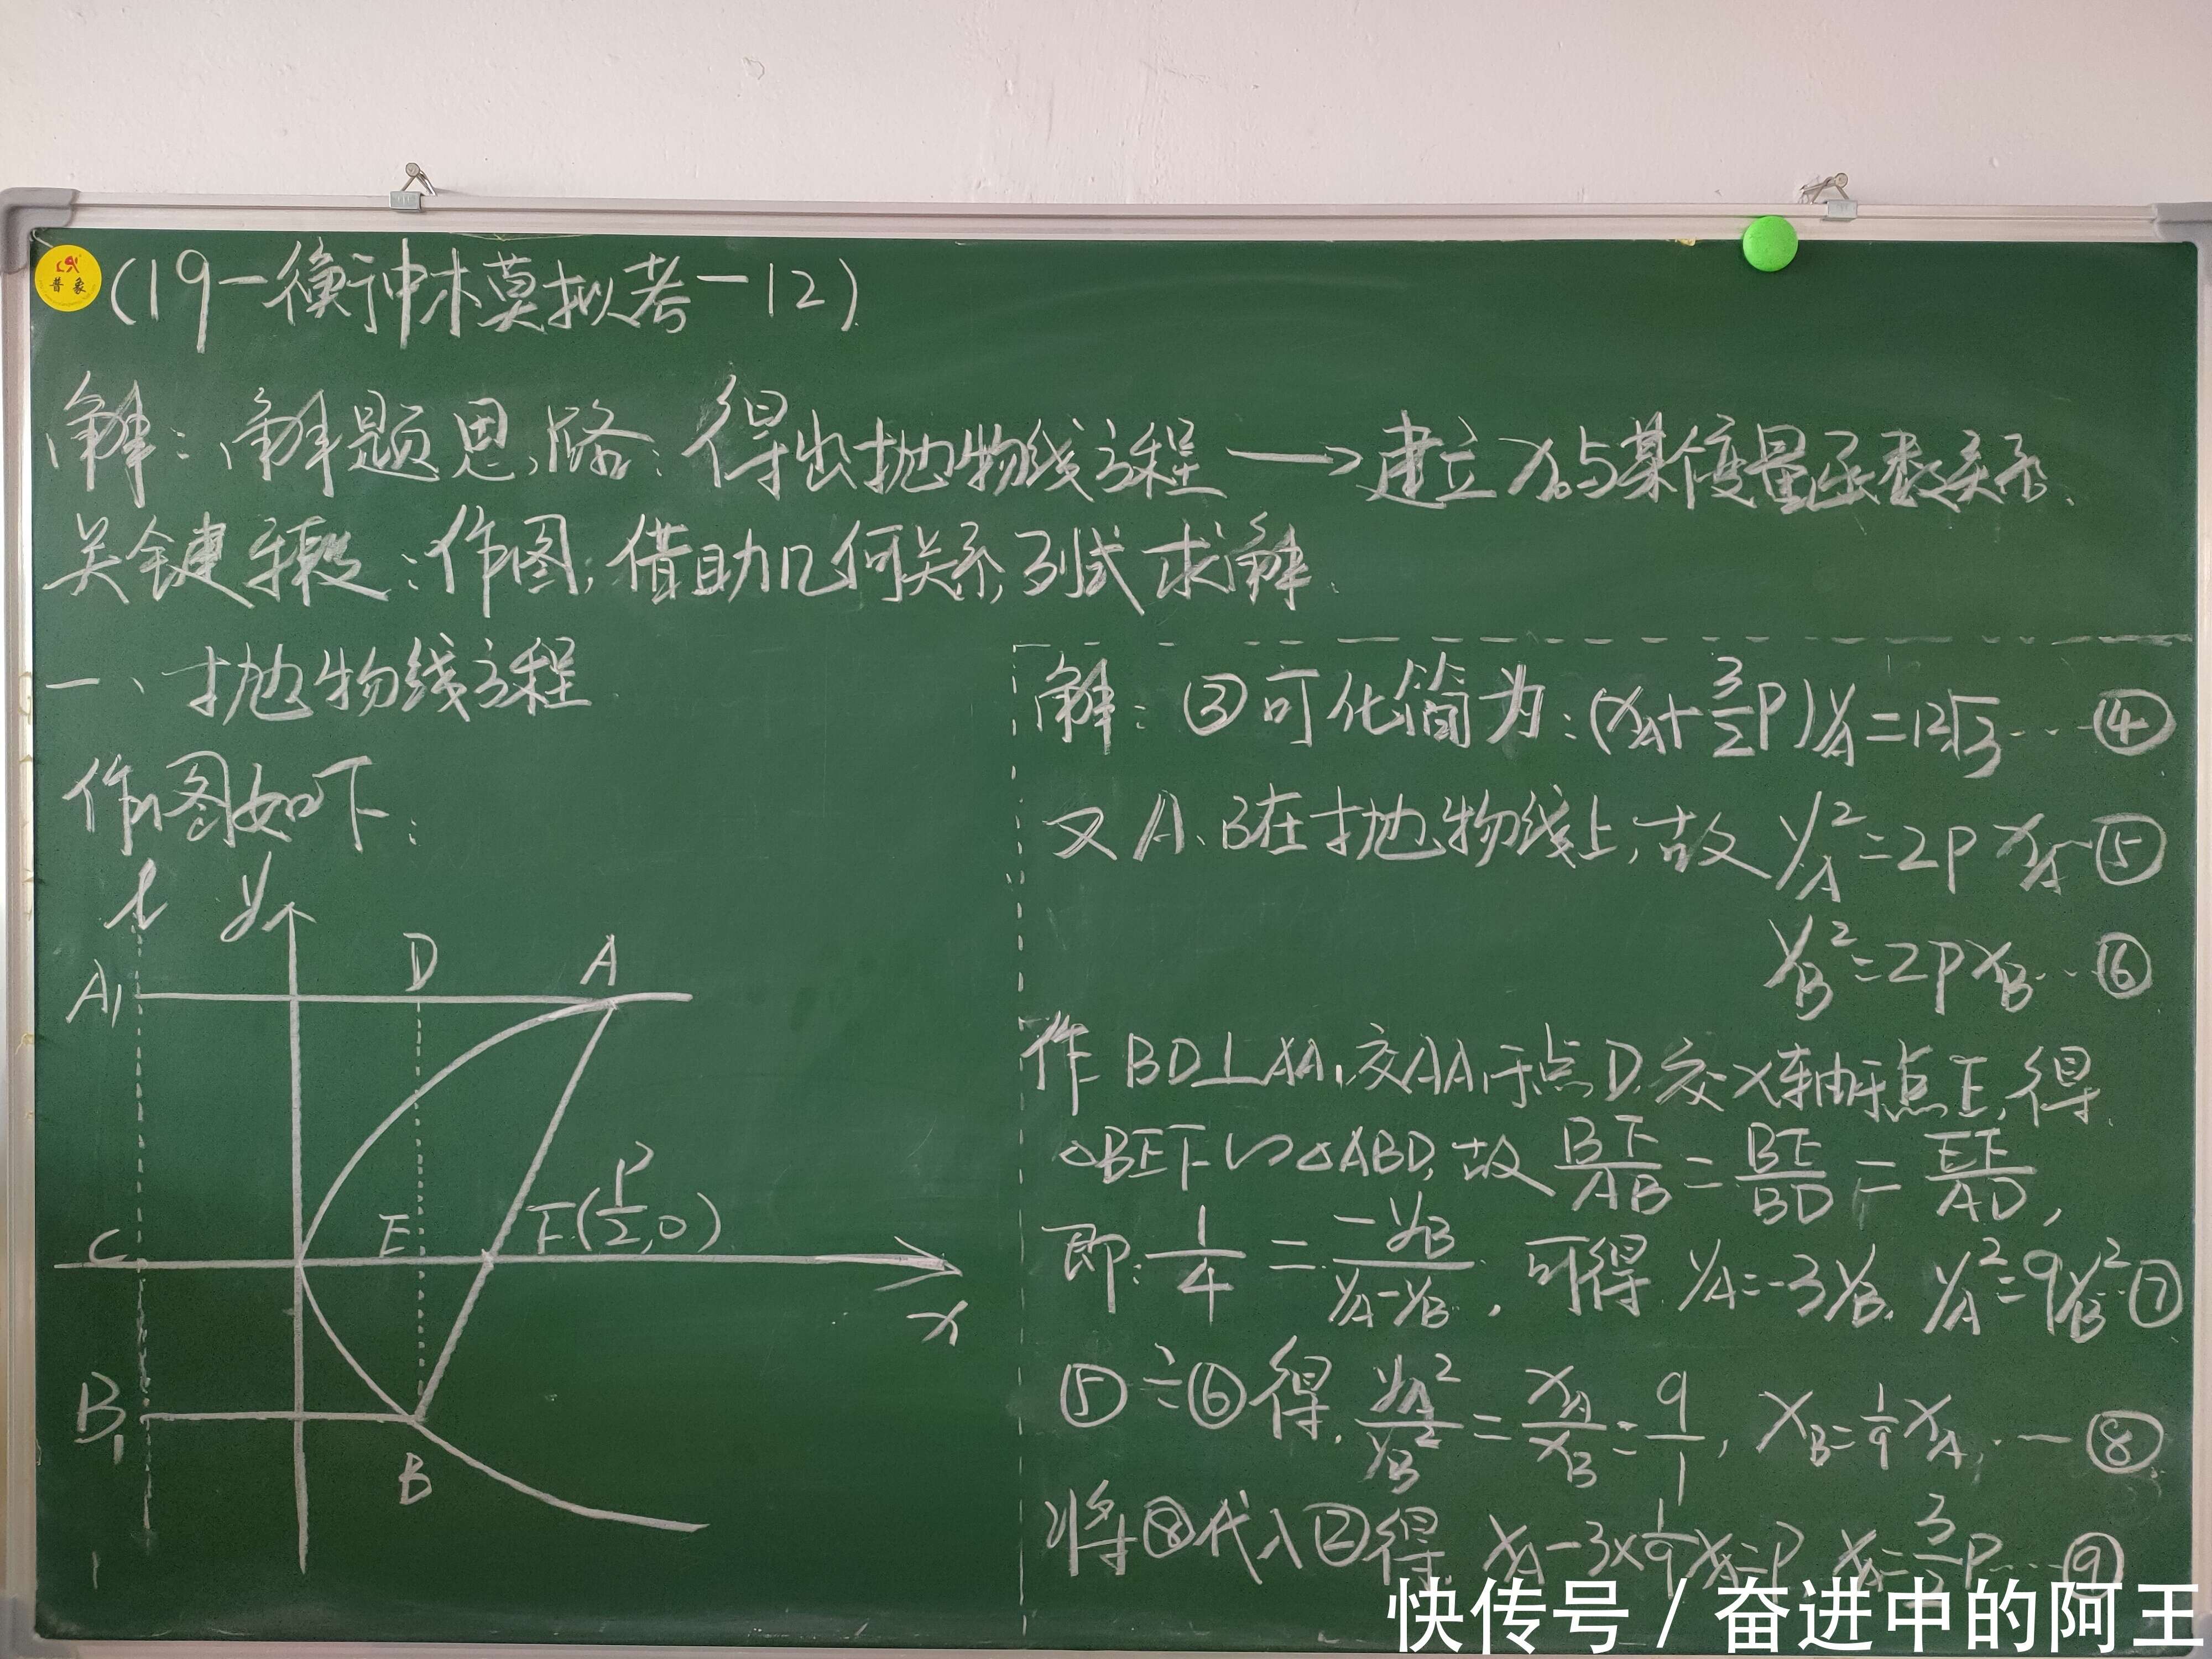 普象
(19-衡神木模拟考-12)
解:解题思路:得出抛物线方程→建立x₀与某度量函数关系.
关键手段:作图,借助几何关系列式求解.
一、抛物线方程
作图如下:
l y D A
A₁
C E F(P/2,0)
x
B₁
B
解:③可化简为:(x_A+3/2P)y_A=12√3……④
又A、B在抛物线上,故y_A²=2Px_A…⑤
y_B²=2Px_B…⑥
作BD⊥AA₁交AA₁于点D,交x轴于点E,得
△BEF∽△ABD,故BF/AB=BE/BD=EF/AD,
即:1/4=-y_B/(y_A-y_B),可得y_A=-3y_B,y_A²=9y_B²…⑦
⑤÷⑥得,y_A²/y_B²=x_A/x_B=9/1,x_B=1/9x_A.…⑧
将⑧代入②得,x_A-3×1/9x_A=P x_A=3/2P…⑨
快传号/奋进中的阿王